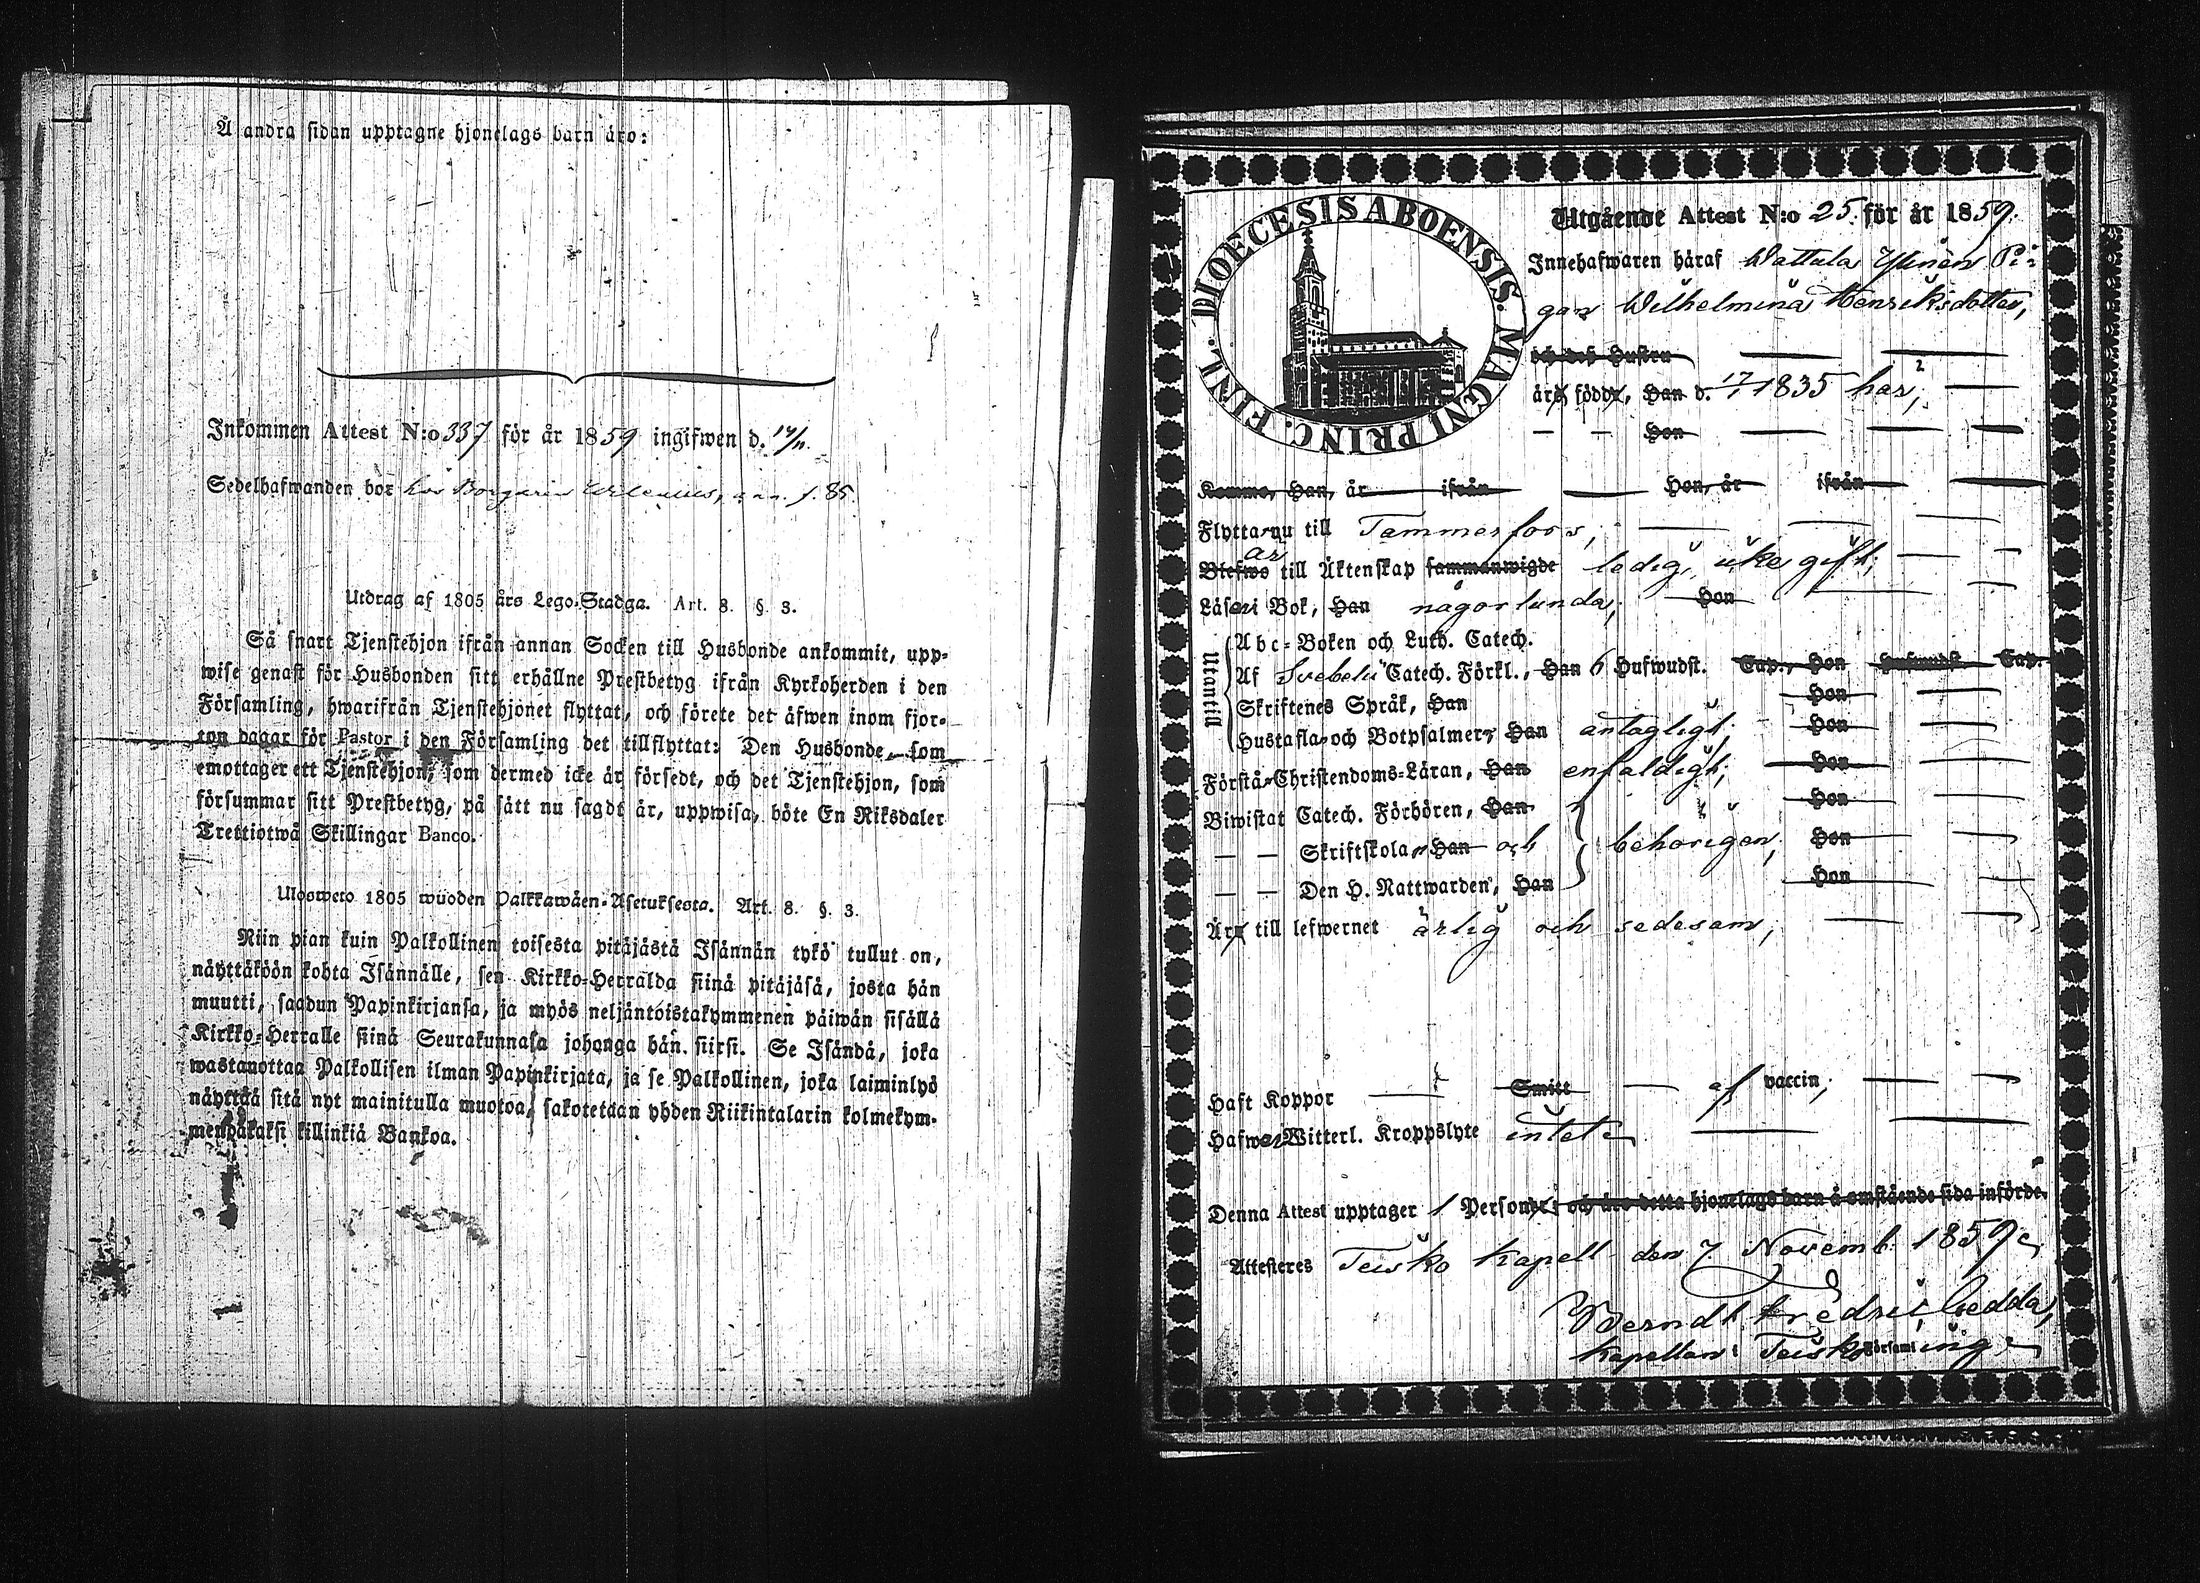 Å andra sidan upptagne hjonelags barn äro:
Inkommen Attest N:o 337 för år 1859 ingifwen d. 14/11.
Sedelhafwanden bor hos Borgaren
Utdrag af 1805 års Lego-Stadga. Art. 8. §. 3.
Så snart Tjenstehjon ifrån annan Socken till Husbonde ankommit, upp-
wise genast för Husbonden sitt erhållne Prestbetyg ifrån Kyrkoherden i den
Församling, hwarifrån Tjenstehjonet flyttat, och förete det äfwen inom fjor-
ton dagar för Pastor i den Församling det tillflyttat: Den Husbonde, som
emottager ett Tjenstehjon, som dermed icke är försedt, och det Tjenstehjon, som
försummar sitt Prestbetyg, på sätt nu sagdt är, uppwisa, böte En Riksdaler
Trettiotwå Skillingar Banco.
Ulosweto 1805 wuoden Palkkawäen-Asetuksesta. Art. 8. §. 3.
Niin pian kuin Palkollinen toisesta pitäjästä Isännän tykö tullut on,
näyttäköön kohta Isännälle, sen Kirkko-Herralda siinä pitäjäsä, josta hän
muutti, saadun Papinkirjansa, ja myös neljäntoistakymmenen päiwän sisällä
Kirkko-Herralle siinä Seurakunnasa johonga hän siirsi. Se Isändä, joka
wastanottaa Palkollisen ilman Papinkirjata, ja se Palkollinen, joka laiminlyö
näyttää sitä nyt mainitulla muotoa, sakotetaan yhden Riikintalarin kolmekym-
mendäkaksi killinkiä Bankoa.
DIOECESIS ABOENSIS. MAGNI PRINC. FINL.
Utgående Attest N:o 25. för år 1859.
Innehafwaren häraf Wattula Ylinen Pi-
gan Wilhelmina Henriksdotter,
och des Hustru
äro födde, Han d. 17/7 1835 här,
Hon
Komne, Han, år ifrån Hon, år ifrån
Flytta nu till Tammerfors,
är
Blefwo till Äktenskap sammanwigde ledig, icke gift,
Läser i Bok, Han någorlunda, Hon
Utantill
Abc-Boken och Luth. Catech.
Af Svebelii Catech. Förkl., Han 6 Hufwudst. Cap., Hon Hufwudst. Cap.
Skriftenes Språk, Han Hon
Hustafla och Botpsalmer, Han antagligt, Hon
Förstå Christendoms-Läran, Han enfaldigt, Hon
Biwistat Catech. Förhören, Han Hon
— — Skriftskola, Han och behörigen, Hon
— — Den H. Nattwarden, Han Hon
Äro till lefwernet ärlig och sedesam,
Haft Koppor Smitt af vaccin,
Hafwer Witterl. Kroppslyte intet
Denna Attest upptager 1 Person, och äro detta hjonelags barn å omstående sida införde.
Attesteres Teisko Kapell den 7 Novemb. 1859
Berndt Fredric Gedda,
Kapellan i Teisko Församling